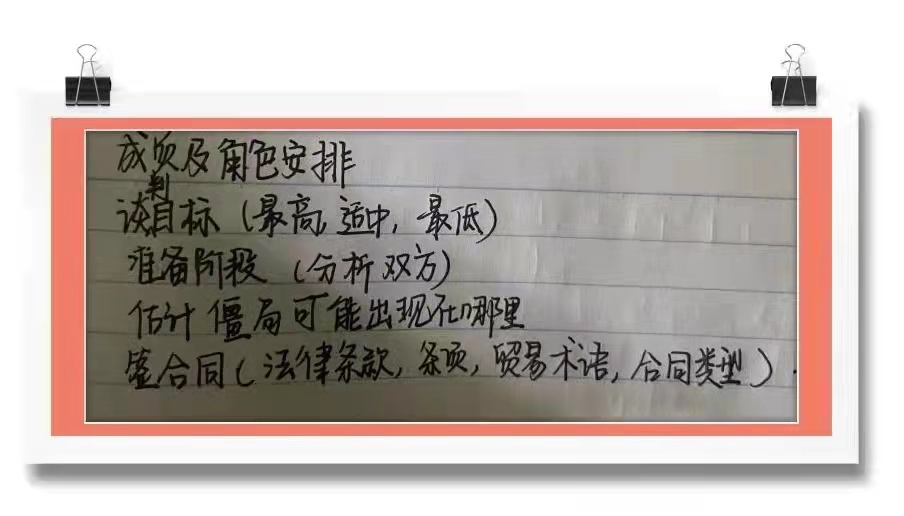 成员及角色安排
谈判目标（最高，适中，最低）
准备阶段（分析双方）
估计僵局可能出现在哪里
签合同（法律条款，条项，贸易术语，合同类型）.